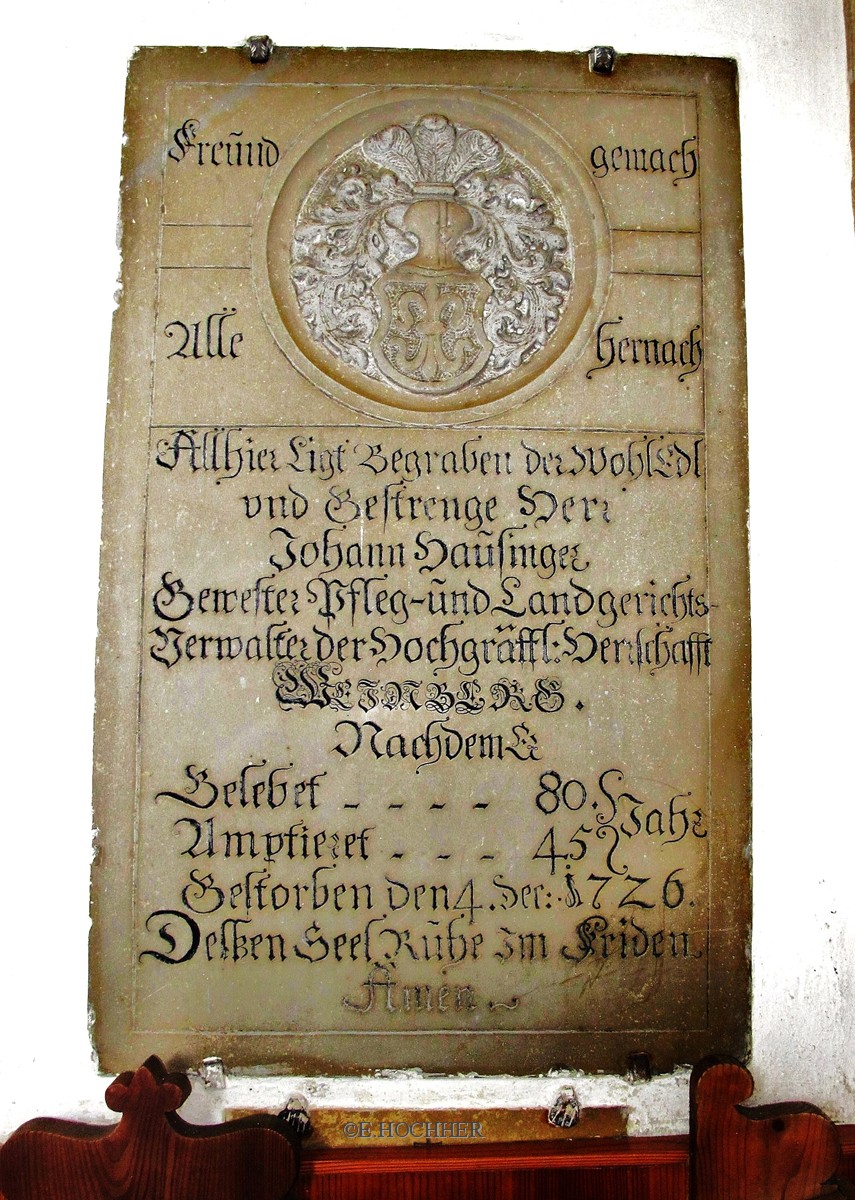 Freünd gemach
Alle hernach
Allhier Ligt Begraben der WohlEdl
vnd Gestrenge Herr
Johann Haüsinger
Gewester Pfleg-ünd Landgerichts-
Verwalter der Hochgräffl: Herrschafft
WEINBERG.
Nachdem Er
Gelebet - - - - 80. Jahr
Amptieret - - - 45
Gestorben den 4. Dec: 1726.
Desßen Seel Rühe Im Friden
Amen
©E.HOCHHER